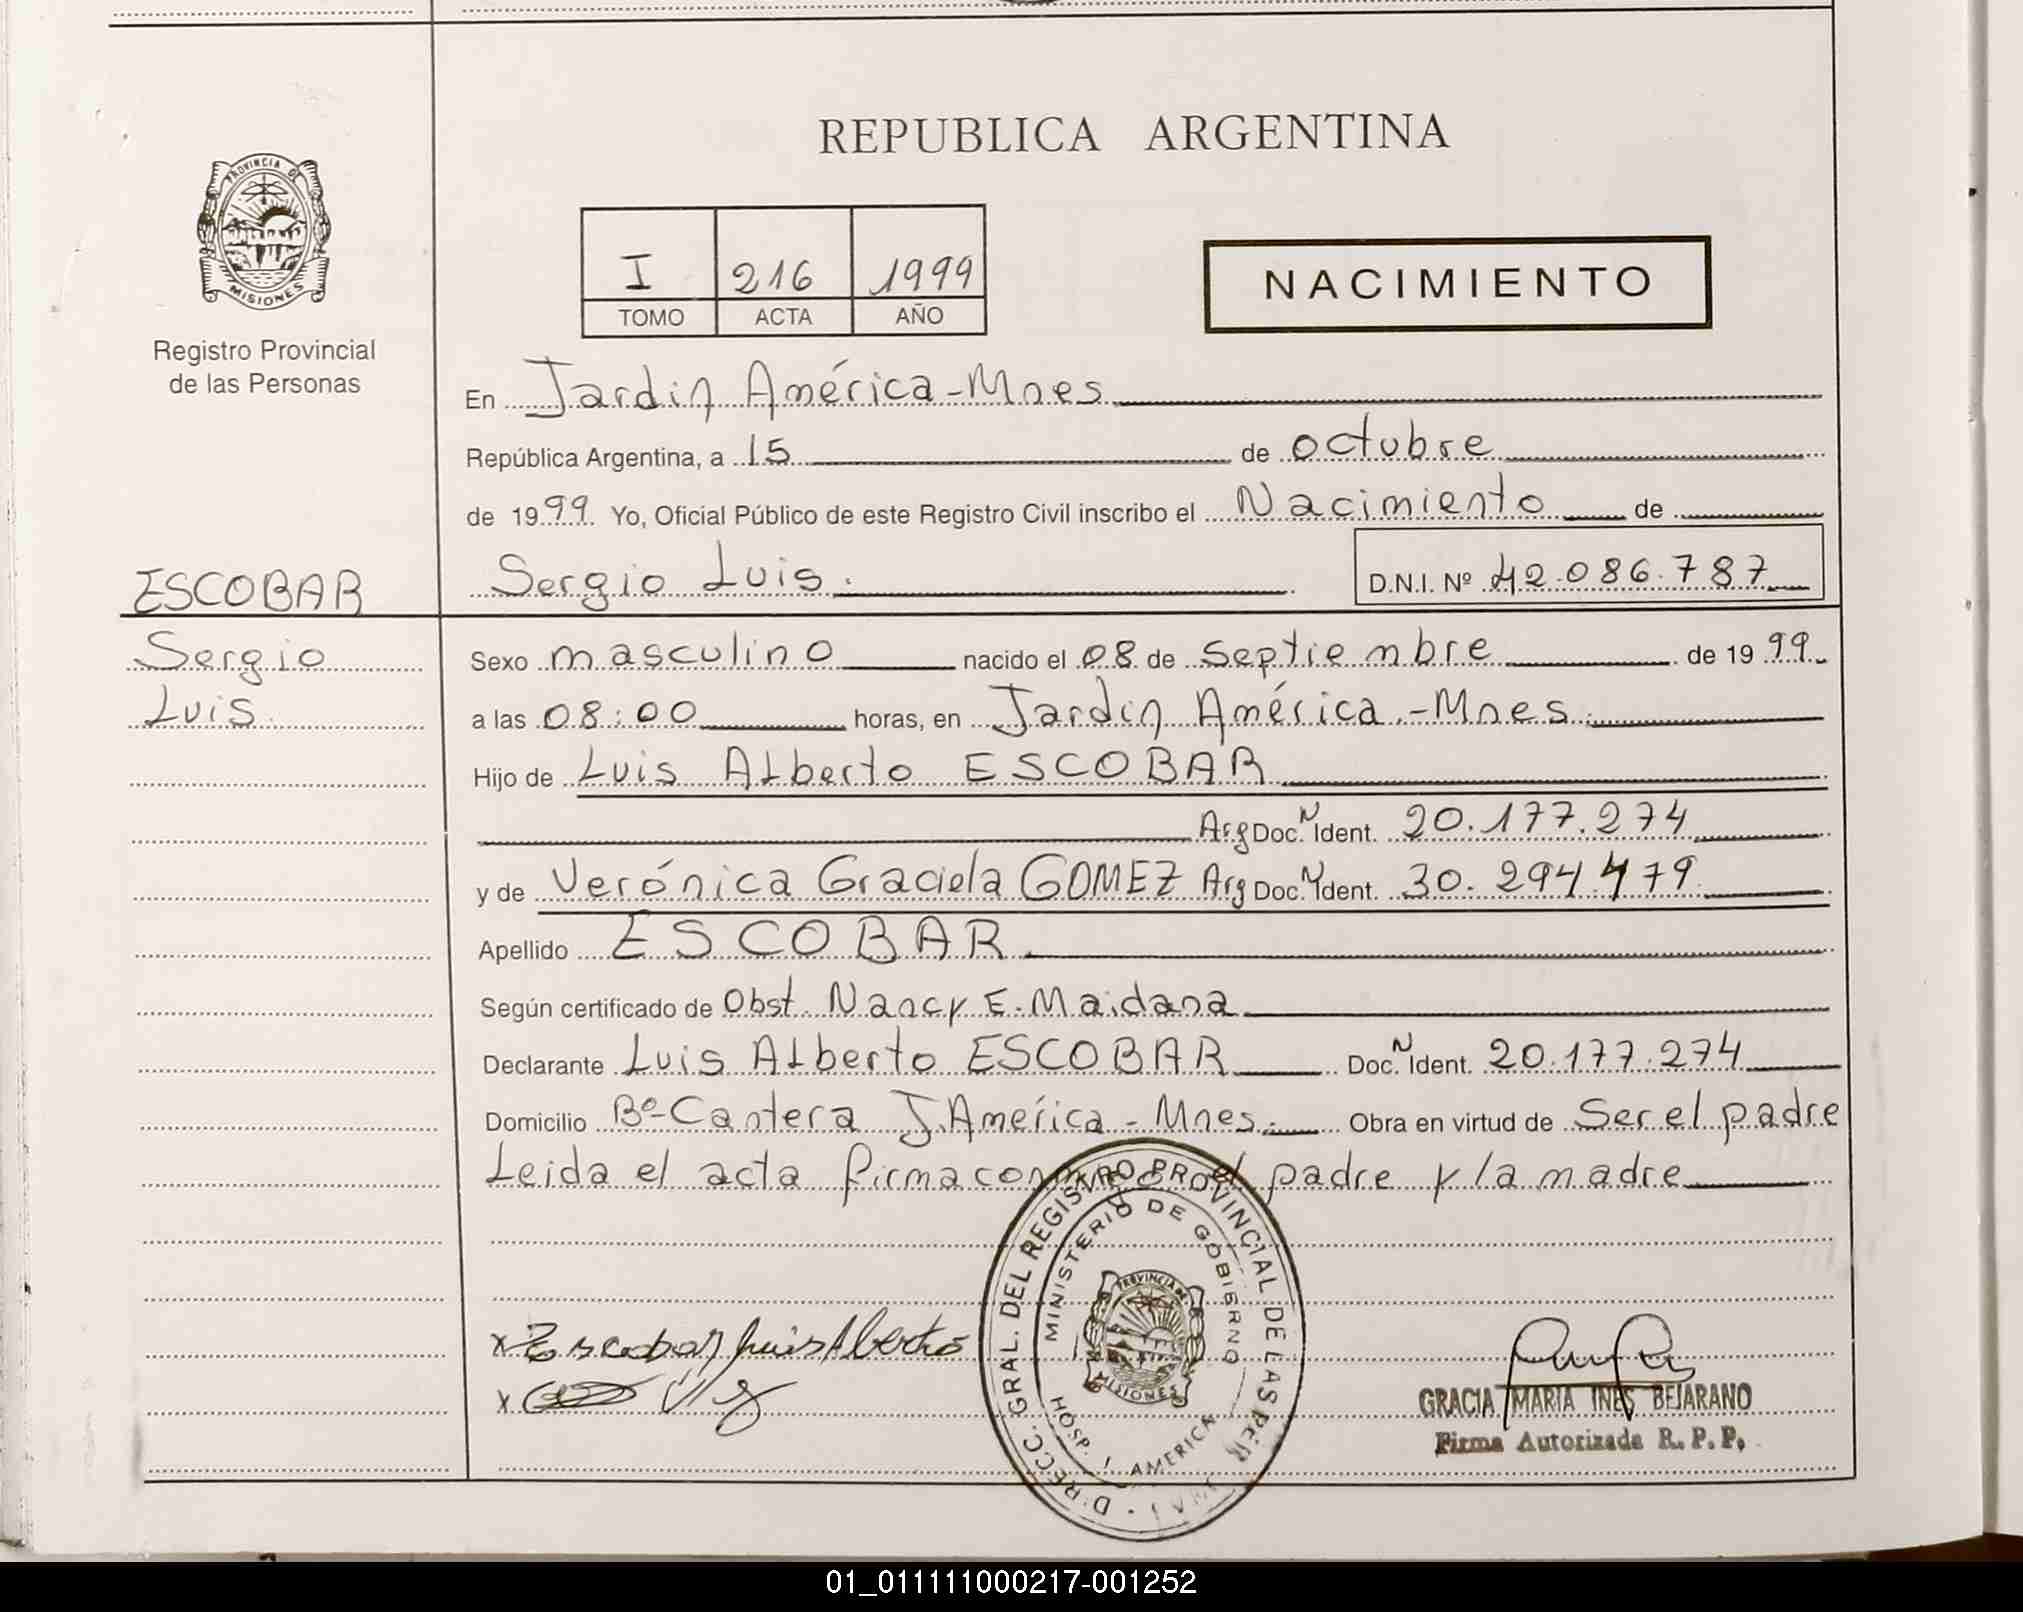 REPUBLICA ARGENTINA
PROVINCIA DE
MISIONES
Registro Provincial
de las Personas
I 216 1999
TOMO ACTA AÑO
NACIMIENTO
En Jardin América - Mnes
República Argentina, a 15 de octubre
de 1999. Yo, Oficial Público de este Registro Civil inscribo el Nacimiento de
Sergio Luis. D.N.I. Nº 42.086.787
ESCOBAR
Sergio
Luis
Sexo masculino nacido el 08 de septiembre de 1999
a las 08:00 horas, en Jardin América - Mnes.
Hijo de Luis Alberto ESCOBAR
Arg Doc. N Ident. 20.177.274
y de Verónica Graciela GOMEZ Arg Doc. N Ident. 30.294.479
Apellido ESCOBAR
Según certificado de Obst. Nancy E. Maidana
Declarante Luis Alberto ESCOBAR Doc. N Ident. 20.177.274
Domicilio Bº Cantera J. América - Mnes. Obra en virtud de Ser el padre
Leida el acta firma conmigo el padre y la madre
DIRECC. GRAL. DEL REGISTRO PROVINCIAL DE LAS PER
MINISTERIO DE GOBIERNO
PROVINCIA DE
MISIONES
HOSP. J. AMERICA
x Escobar Luis Alberto
x
GRACIA MARIA INES BEJARANO
Firma Autorizada R. P. P.
01_011111000217-001252